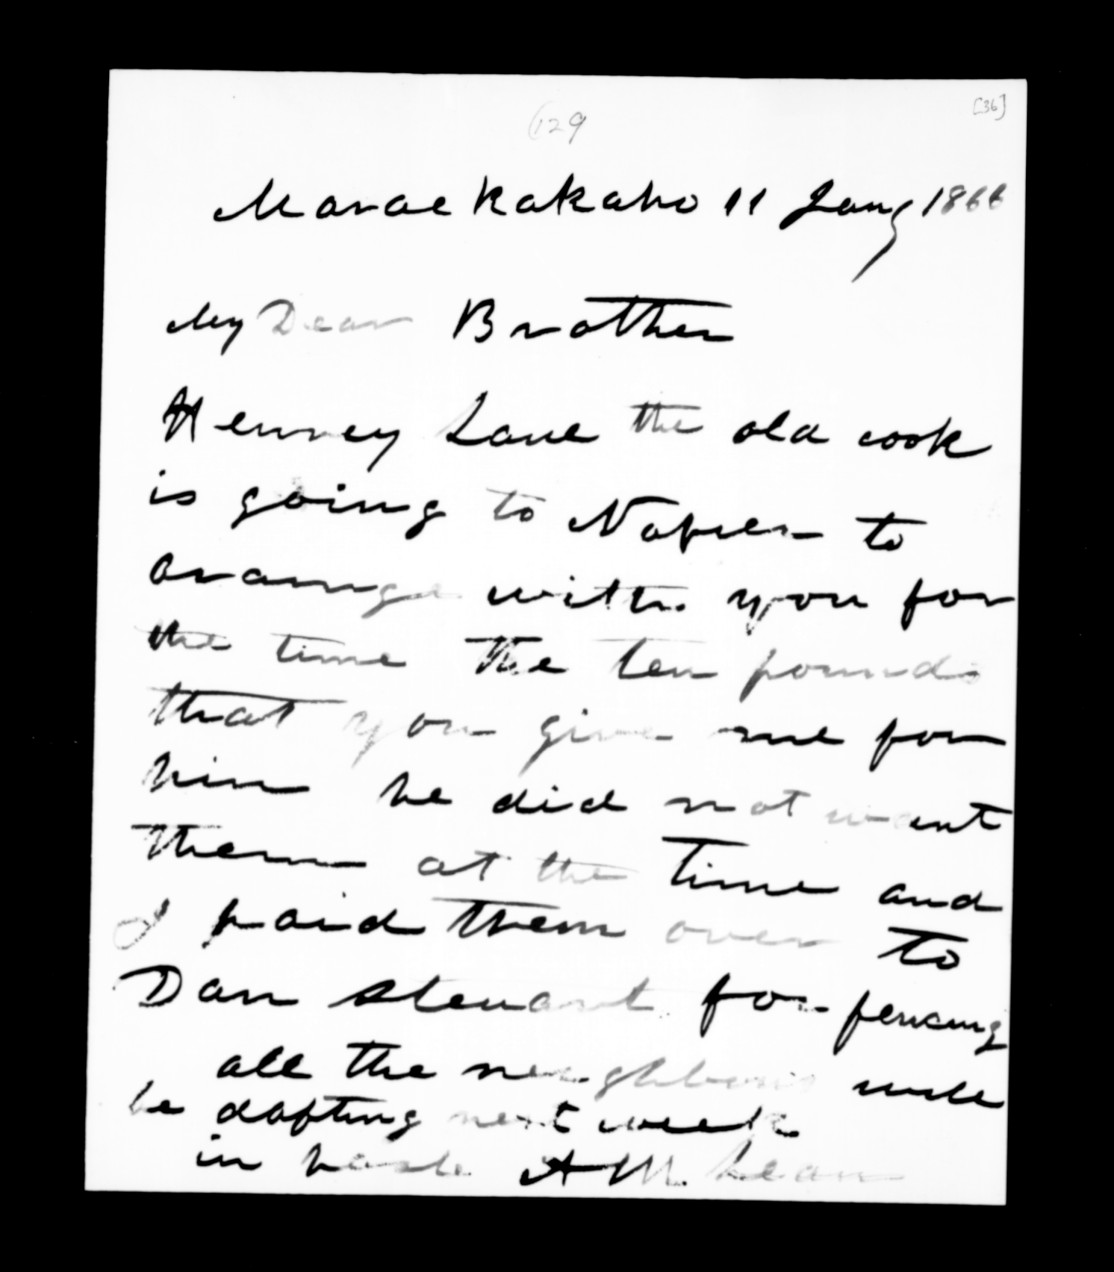 [36]
129
Maraekakaho 11 Jany 1866
My Dear Brother
Henney Lane the old cook
is going to Napier to
arange with you for
the time the ten pounds
that you give me for
him he did not want
them at the time and
I paid them over to
Dan Stewart for fencing
all the neighbours will
be dafting next week
in haste A McLean